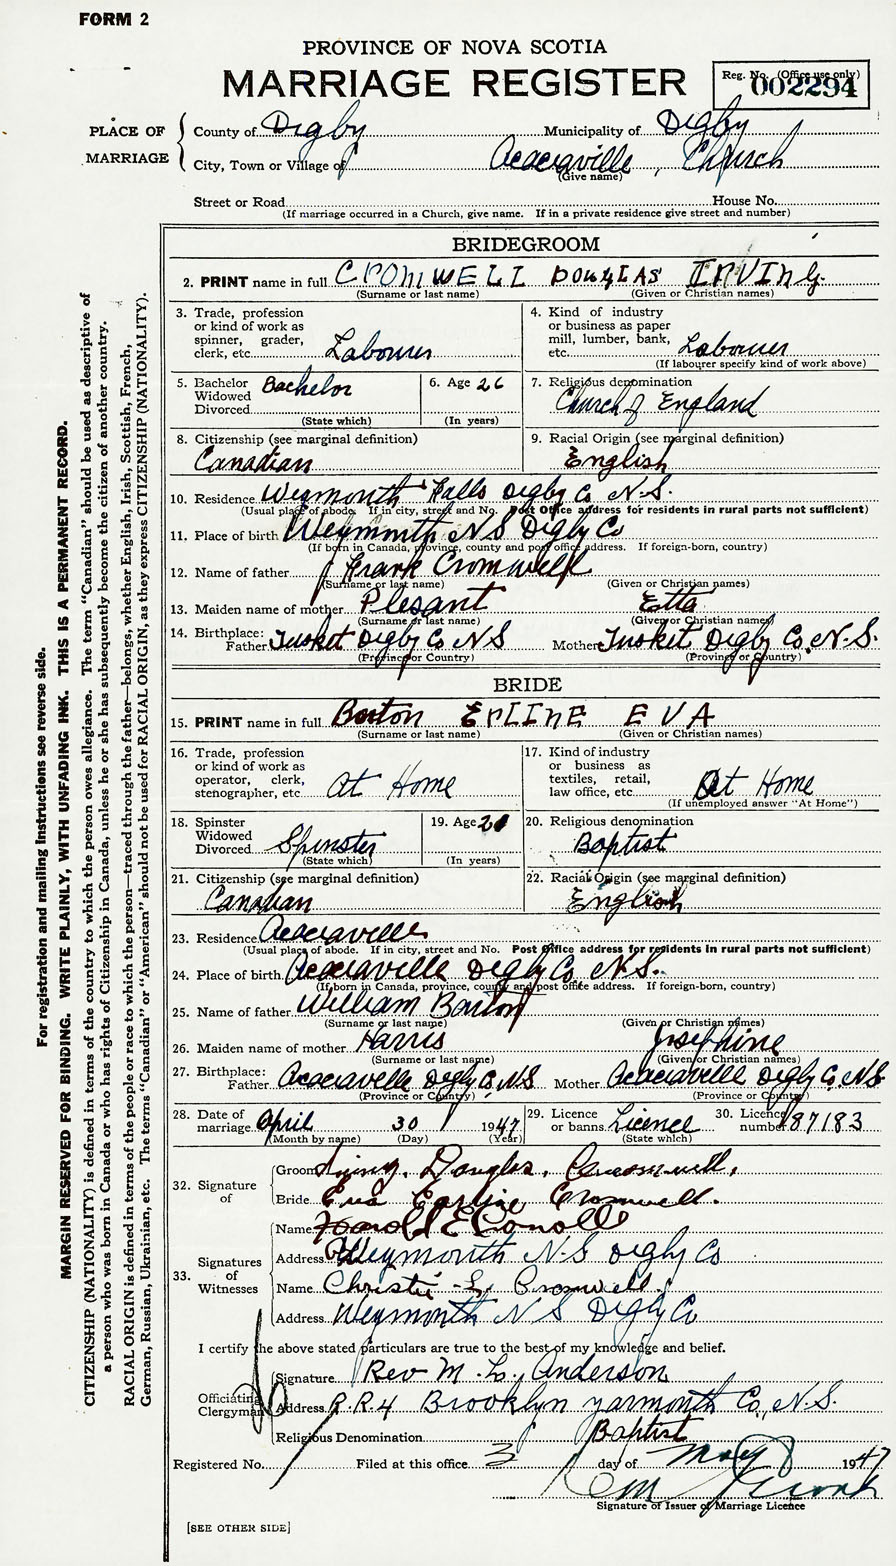 FORM 2
PROVINCE OF NOVA SCOTIA
MARRIAGE REGISTER
Reg. No. (Office use only)
002294
PLACE OF MARRIAGE
County of Digby Municipality of Digby
City, Town or Village of Acaciaville, Church
(Give name)
Street or Road House No.
(If marriage occurred in a Church, give name. If in a private residence give street and number)
BRIDEGROOM
2. PRINT name in full CROMWELL DOUGLAS IRVING
(Surname or last name) (Given or Christian names)
3. Trade, profession or kind of work as spinner, grader, clerk, etc. Labourer
4. Kind of industry or business as paper mill, lumber, bank, etc. Labourer
(If labourer specify kind of work above)
5. Bachelor Widowed Divorced Bachelor
(State which)
6. Age 26
(In years)
7. Religious denomination
Church of England
8. Citizenship (see marginal definition)
Canadian
9. Racial Origin (see marginal definition)
English
10. Residence Weymouth Falls Digby Co N.S.
(Usual place of abode. If in city, street and No. Post Office address for residents in rural parts not sufficient)
11. Place of birth Weymouth N S Digby Co
(If born in Canada, province, county and post office address. If foreign-born, country)
12. Name of father Frank Cromwell
(Surname or last name) (Given or Christian names)
13. Maiden name of mother Plesant Etta
(Surname or last name) (Given or Christian names)
14. Birthplace: Father Tusket Digby Co N S Mother Tusket Digby Co, N.S.
(Province or Country) (Province or Country)
BRIDE
15. PRINT name in full Barton ERLINE EVA
(Surname or last name) (Given or Christian names)
16. Trade, profession or kind of work as operator, clerk, stenographer, etc. At Home
17. Kind of industry or business as textiles, retail, law office, etc. At Home
(If unemployed answer "At Home")
18. Spinster Widowed Divorced Spinster
(State which)
19. Age 21
(In years)
20. Religious denomination
Baptist
21. Citizenship (see marginal definition)
Canadian
22. Racial Origin (see marginal definition)
English
23. Residence Acaciaville
(Usual place of abode. If in city, street and No. Post Office address for residents in rural parts not sufficient)
24. Place of birth Acaciaville Digby Co N.S.
(If born in Canada, province, county and post office address. If foreign-born, country)
25. Name of father William Barton
(Surname or last name) (Given or Christian names)
26. Maiden name of mother Harris Josephine
(Surname or last name) (Given or Christian names)
27. Birthplace: Father Acaciaville Digby Co, N S Mother Acaciaville Digby Co, N S
(Province or Country) (Province or Country)
28. Date of marriage April 30 1947
(Month by name) (Day) (Year)
29. Licence or banns Licence
(State which)
30. Licence number 87183
32. Signature of
Groom Irving. Douglas. Cromwell.
Bride Eva Earline Cromwell.
33. Signatures of Witnesses
Name Harold E
Address Weymouth N.S Digby Co
Name Christie L. Cromwell.
Address Weymouth N S Digby Co
I certify the above stated particulars are true to the best of my knowledge and belief.
Officiating Clergyman
Signature Rev M. L. Anderson
Address R.R.4 Brooklyn Yarmouth Co, N.S.
Religious Denomination Baptist
Registered No. Filed at this office 3 day of May 1947
Signature of Issuer of Marriage Licence
[SEE OTHER SIDE]
For registration and mailing instructions see reverse side.
MARGIN RESERVED FOR BINDING. WRITE PLAINLY, WITH UNFADING INK. THIS IS A PERMANENT RECORD.
CITIZENSHIP (NATIONALITY) is defined in terms of the country to which the person owes allegiance. The term "Canadian" should be used as descriptive of
a person who was born in Canada or who has rights of Citizenship in Canada, unless he or she has subsequently become the citizen of another country.
RACIAL ORIGIN is defined in terms of the people or race to which the person—traced through the father—belongs, whether English, Irish, Scottish, French,
German, Russian, Ukrainian, etc. The terms "Canadian" or "American" should not be used for RACIAL ORIGIN, as they express CITIZENSHIP (NATIONALITY).